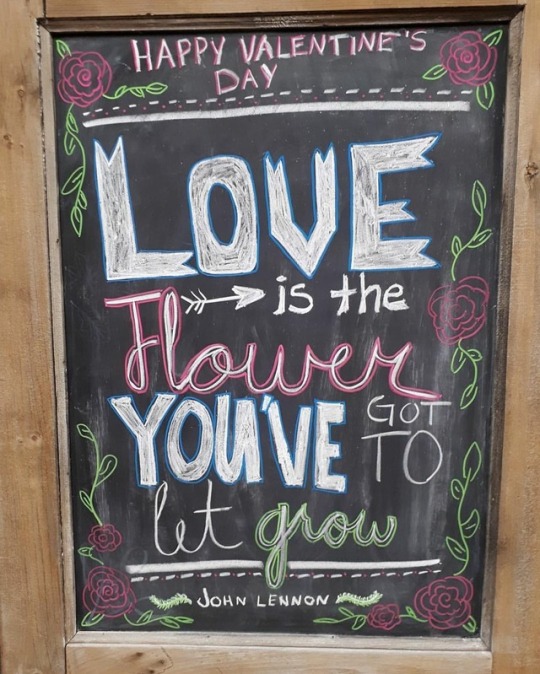 HAPPY VALENTINE'S
DAY
LOVE
is the
Flower
YOU'VE GOT
TO
let grow
JOHN LENNON